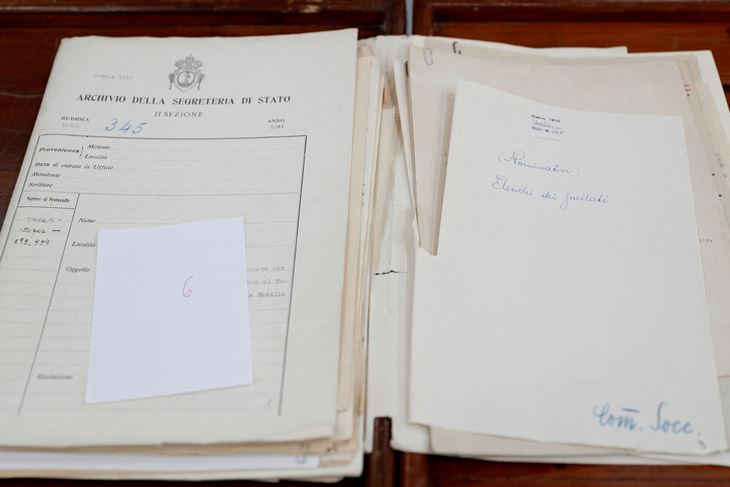 ARCHIVIO DELLA SEGRETERIA DI STATO
II SEZIONE
RUBRICA
345
ANNO
Provenienza
Mittente
Località
Data di entrata in Ufficio
Minutante
Scrittore
Numeri di Protocollo
Nome
Località
Oggetto
6
Risoluzione
1
(Nominativi)
Elenchi dei fucilati
Com. Socc.